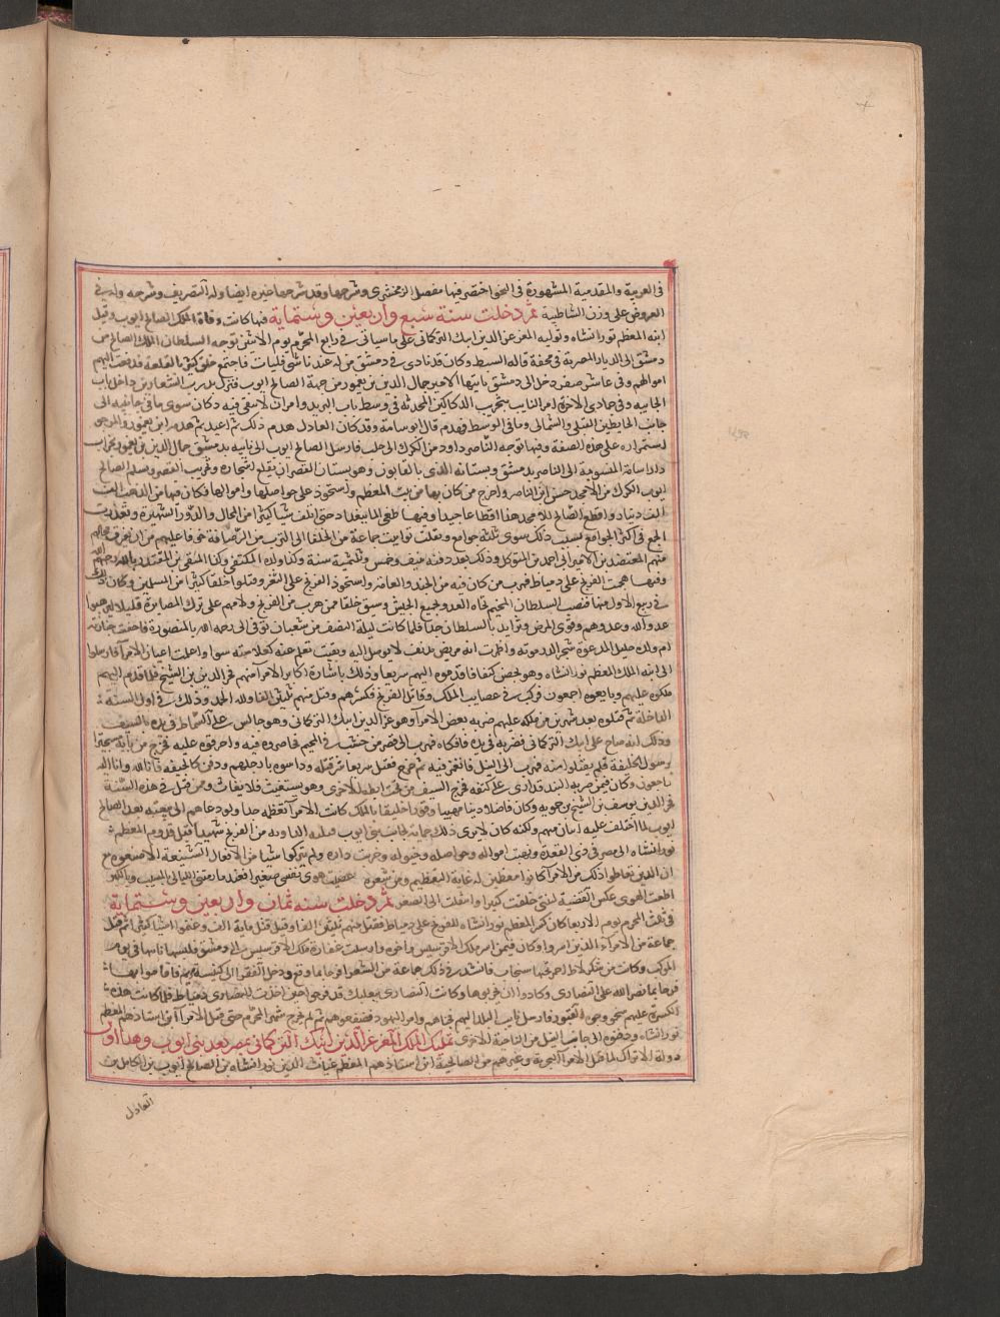 في العربية والمقدمة المشهورة في النحو اختصر فيها مفصل الزمخشري وشرحها وقد شرحها غيره ايضا وله التصريف وشرحه وله في
العروض على وزن الشاطبية ثم دخلت سنة سبع واربعين وستماية فيها كانت وفاة الملك الصالح ايوب وقتل
ابنه المعظم تورانشاه وتوليه المعز عز الدين ايبك التركماني على ما سياتي في رابع المحرم يوم الاثنين توجه السلطان الملك الصالح من
دمشق الى الديار المصرية في محفة قاله السبط وكان قد نادى في دمشق من له عندنا شي فليات فاجتمع خلق كثير بالقلعة فدفعت اليهم
اموالهم وفي عاشر صفر دخل الى دمشق نايبها الامير جمال الدين بن يغمور من جهة الصالح ايوب فنزل بدرب الشعارين داخل باب
الجابيه وفي جمادى الاخرة امر النايب بتخريب الدكاكين المحدثة في وسط باب البريد وامر ان لا يبقى فيه دكان سوى ما في جانبيه الى
جانب الحايطين القبلي والشمالي وما في الوسط فهدم قال ابو شامة وقد كان العادل هدم ذلك ثم اعيد ثم هدمه ابن يغمور والمرجو
استمراره على هذه الصفة وفيها توجه الناصر داود من الكرك الى حلب فارسل الصالح ايوب الى نايبه بدمشق جمال الدين بن يغمور بخراب
دار اسامة المنسوبة الى الناصر بدمشق وبستانه الذي بالقابون وهو بستان القصر ان تقلع اشجاره ويخرب القصر وتسلم الصالح
ايوب الكرك من الامجد حسن ابن الناصر واخرج من كان بها من بيت المعظم واستحوذ على حواصلها واموالها فكان فيها من الذهب الف
الف دينار واقطع الصالح للامجد هذا اقطاعا جيدا وفيها طغى الما ببغداد حتى اتلف شيا كثيرا من المحال والدور الشهيرة وتعذرت
الجمع في اكثر الجوامع بسبب ذلك سوى ثلثة جوامع ونقلت توابيت جماعة من الخلفا الى الترب من الرصافة خوفا عليهم من ان تغرق محالهم
منهم المعتضد بن الامير ابي احمد بن المتوكل وذلك بعد دفنه بنيف وخمسين وثلثمية سنة وكذا ولده المكتفي وكذا المتقي بن المقتدر بالله رحمهم الله
وفيها هجمت الفرنج على دمياط فهرب من كان فيه من الجند والعامة واستحوذ الفرنج على الثغر وقتلوا خلقا كثيرا من المسلمين وكان ذلك
في ربيع الاول منها فنصب السلطان المخيم تجاه العدو بجميع الجيش وشنق خلقا ممن هرب من الفرنج ولامهم على ترك المصابرة قليلا ليرهبوا
عدو الله وعدوهم وقوي المرض وتزايد بالسلطان جدا فلما كانت ليلة النصف من شعبان توفي الى رحمه الله بالمنصورة فاخفت جاريته
ام ولده خليل المدعوة شجر الدر موته واظهرت انه مريض مدنف لا يوصل اليه وبقيت تعلم عنه كعلامته سوا واعلمت اعيان الامرا فارسلوا
الى ابنه الملك المعظم تورانشاه وهو بحصن كيفا فاقدموه اليهم سريعا وذلك باشارة اكابر الامرا منهم فخر الدين بن الشيخ فلما قدم اليهم
ملكوه عليهم وبايعوه اجمعون فركب في عصايب الملك وقاتل الفرنج فكسرهم وقتل منهم ثلثين الفا ولله الحمد وذلك في اول السنة
الداخلة ثم قتلوه بعد شهرين من ملكه عليهم ضربه بعض الامرا وهو عز الدين ايبك التركماني وهو جالس على السماط في يده بالسيف
وذلك انه صاح على ايبك التركماني فضربه في يده فافكاه فهرب الى قصر من خشب في المخيم فحاصروه فيه واحرقوه عليه فخرج من بابه مستجيرا
برسول الخليفة فلم يقبلوا منه فهرب الى النيل فانغمر فيه ثم خرج فقتل سريعا شر قتلة وداسوه بارجلهم ودفن كالجيفه فانا لله وانا اليه
راجعون وكان فيمن ضربه البندقداري على كتفه فخرج السيف من تحت ابطه الاخرى وهو يستغيث فلا يغاث وممن قتل في هذه السنة
فخر الدين يوسف بن الشيخ بن حمويه وكان فاضلا دينا مهيبا وقورا خليقا بالملك كانت الامرا تعظمه جدا ولو دعاهم الى مبيعته بعد الصالح
ايوب لما اختلف عليه اثنان منهم ولكنه كان لا يرى ذلك حماية لجانب بني ايوب قتلته الداويه من الفرنج شهيدا قبل قدوم المعظم
تورانشاه الى مصر في ذي القعدة ونهبت امواله وحواصله وخيوله وخربت داره ولم يتركوا شيا من الافعال الشنيعة الا صنعوه مع
ان الذين تعاطوا ذلك من الامرا كانوا معظمين له غاية التعظيم ومن شعره عصيت هوى نفسي صغيرا فعندما رمتني الليالي بالمشيب وبالكبر
اطعت الهوى عكس القضية ليتني خلقت كبيرا وانتقلت الى الصغر ثم دخلت سنه ثمان واربعين وستماية
في ثالث المحرم يوم الاربعا كان كسر المعظم تورانشاه للفرنج على دمياط فقتل منهم ثلثين الفا وقيل قتل ماية الف وغنموا شيا كثيرا ثم قتل
جماعة من الامرا الذين اسروا وكان فيمن اسر ملك الافرنسيس واخوه وارسلت غفارة ملك الافرنسيس الى دمشق فلبسها نايبها في يوم
الموكب وكانت من سقرلاط احمر فيها سنجاب فانشد في ذلك جماعة من الشعرا فرحا بما وقع ودخل الفقرا الى كنيسة مريم فاقاموا بها
فرحا بما نصر الله على النصارى وكادوا ان يخربوها وكانت النصارى ببعلبك قد فرحوا حين اخذت النصارى دمياط فلما كانت هذه
الكسرة عليهم سخموا وجوه الصور فارسل نايب البلد اليهم فجناهم وامر اليهود فصفعوهم ثم لم يخرج شهر المحرم حتى قتل الامرا ابن استاذهم المعظم
تورانشاه ودفنوه الى جانب النيل من الناحية الاخرى تمليك الملك المعز عز الدين ايبك التركماني بمصر بعد بني ايوب وهذا اول
دولة الاتراك لما قتل الامرا البحرية وغيرهم من الصالحية ابن استاذهم المعظم غياث الدين تورانشاه بن الصالح ايوب بن الكامل بن
العادل